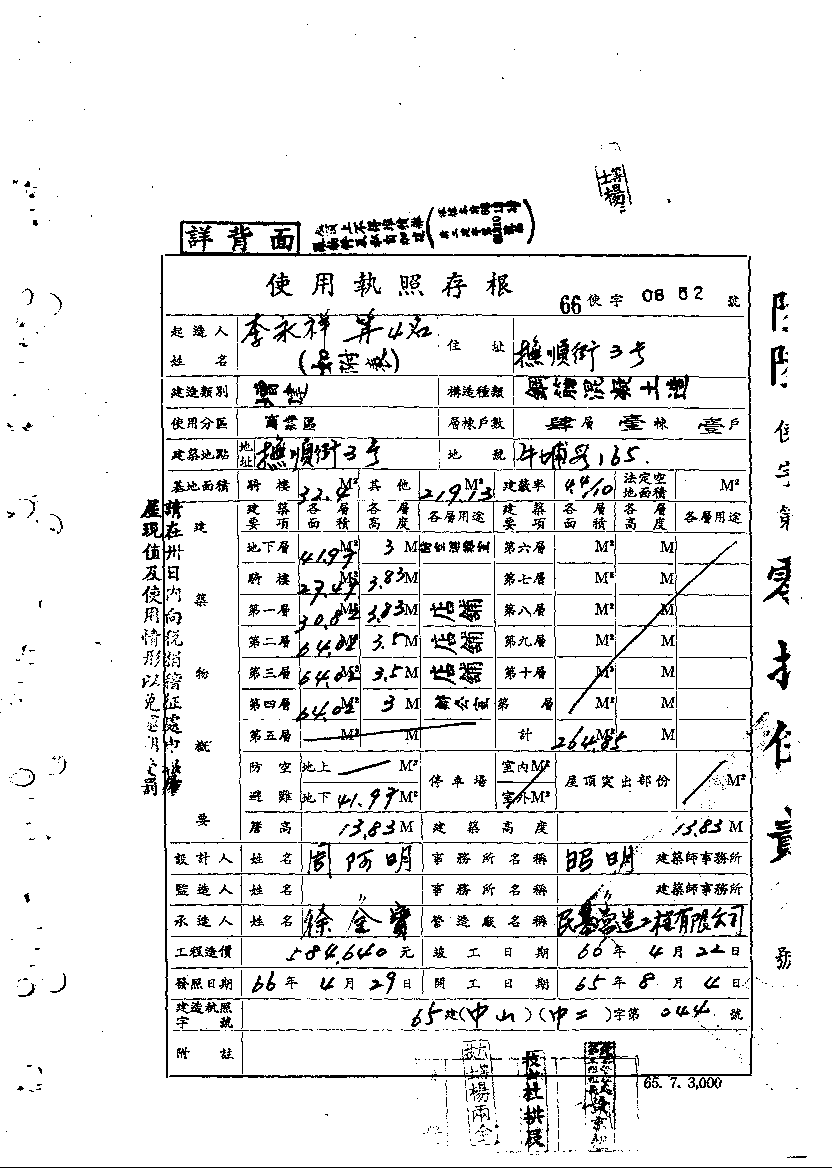 詳背面
使用執照存根
66使字0852號
起造人姓名 李永祥 等4名 住址 撫順街3號
建造類別 增建 構造種類 鋼筋混凝土造
使用分區 商業區 層棟戶數 肆層 壹棟 壹戶
建築地點 地址 撫順街3号 地號 牛埔 165
基地面積 騎樓 32.4 M² 其他 219.13 M² 建蔽率 4.4/10 法定空地面積 M²
建築物概要
建築要項 各層面積 各層高度 各層用途 建築要項 各層面積 各層高度 各層用途
地下層 41.97 M² 3 M 第六層 M² M
騎樓 27.47 M² 3.83 M 第七層 M² M
第一層 30.82 M² 3.83 M 店鋪 第八層 M² M
第二層 64.02 M² 3.5 M 店鋪 第九層 M² M
第三層 64.02 M² 3.5 M 店鋪 第十層 M² M
第四層 64.02 M² 3 M 第 層 M² M
第五層 M² M 計 264.85 M² M
防空避難 地上 M² 停車場 室內 M² 屋頂突出部份 M²
地下 41.97 M² 室外 M²
簷高 13.83 M 建築高度 13.83 M
設計人 姓名 周阿明 事務所名稱 昭明 建築師事務所
監造人 姓名 〃 事務所名稱 〃 建築師事務所
承造人 姓名 徐金寶 營造廠名稱 民營造工程有限公司
工程造價 584,640 元 竣工日期 66年4月22日
發照日期 66年4月29日 開工日期 65年8月4日
建造執照字號 65建(中山)(中二)字第044號
附註
65. 7. 3,000
請在卅日內向稅捐稽征處申
屋現值及使用情形以免
使字第
號